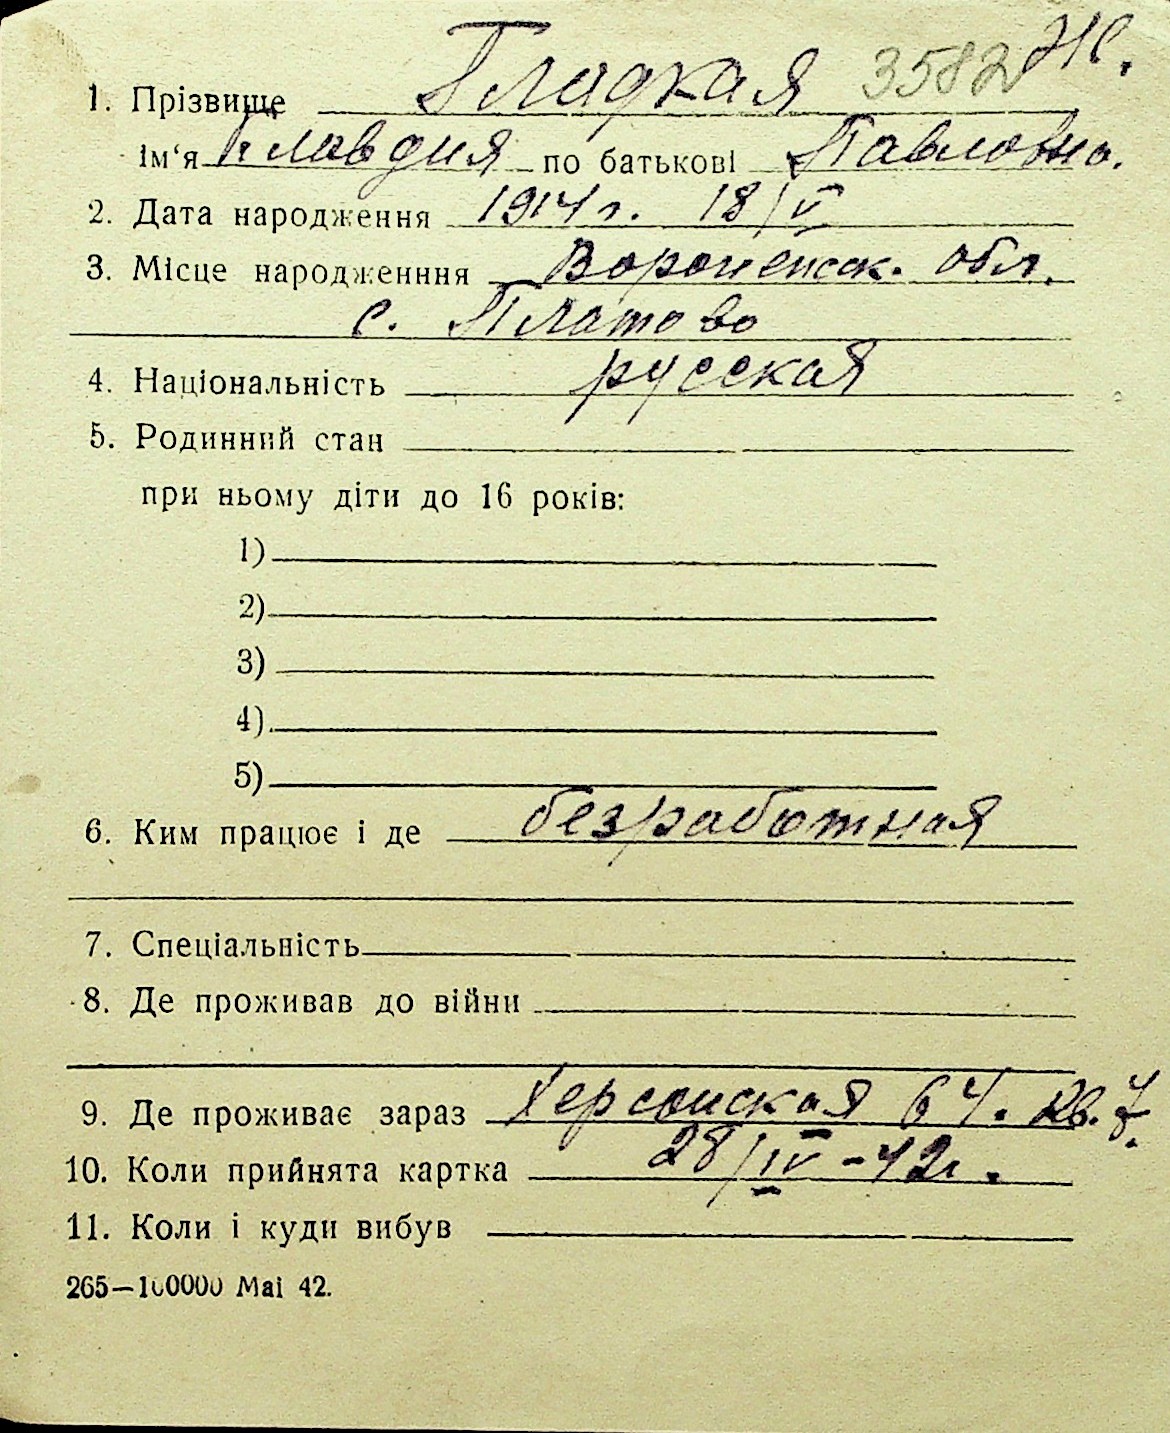 3582 Ж.
1. Прізвище Гладкая
Ім‘я Клавдия по батькові Павловна.
2. Дата народження 1914 г. 18/V
3. Місце народженння Воронежск. обл.
с. Платово
4. Національність русская
5. Родинний стан
при ньому діти до 16 років:
1)
2)
3)
4)
5)
6. Ким працює і де безработная
7. Спеціальність
8. Де проживав до війни
9. Де проживає зараз Херсонская 64. кв. 7.
10. Коли прийнята картка 28/IV-42г.
11. Коли і куди вибув
265—100000 Mai 42.